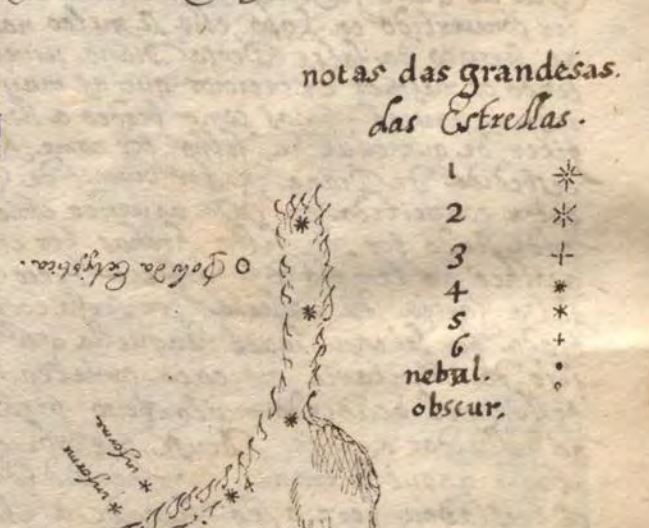 notas das grandesas.
das Estrellas.
1
2
3
4
5
6
nebul.
obscur.
Polu da Eclyptica.
informe
informe